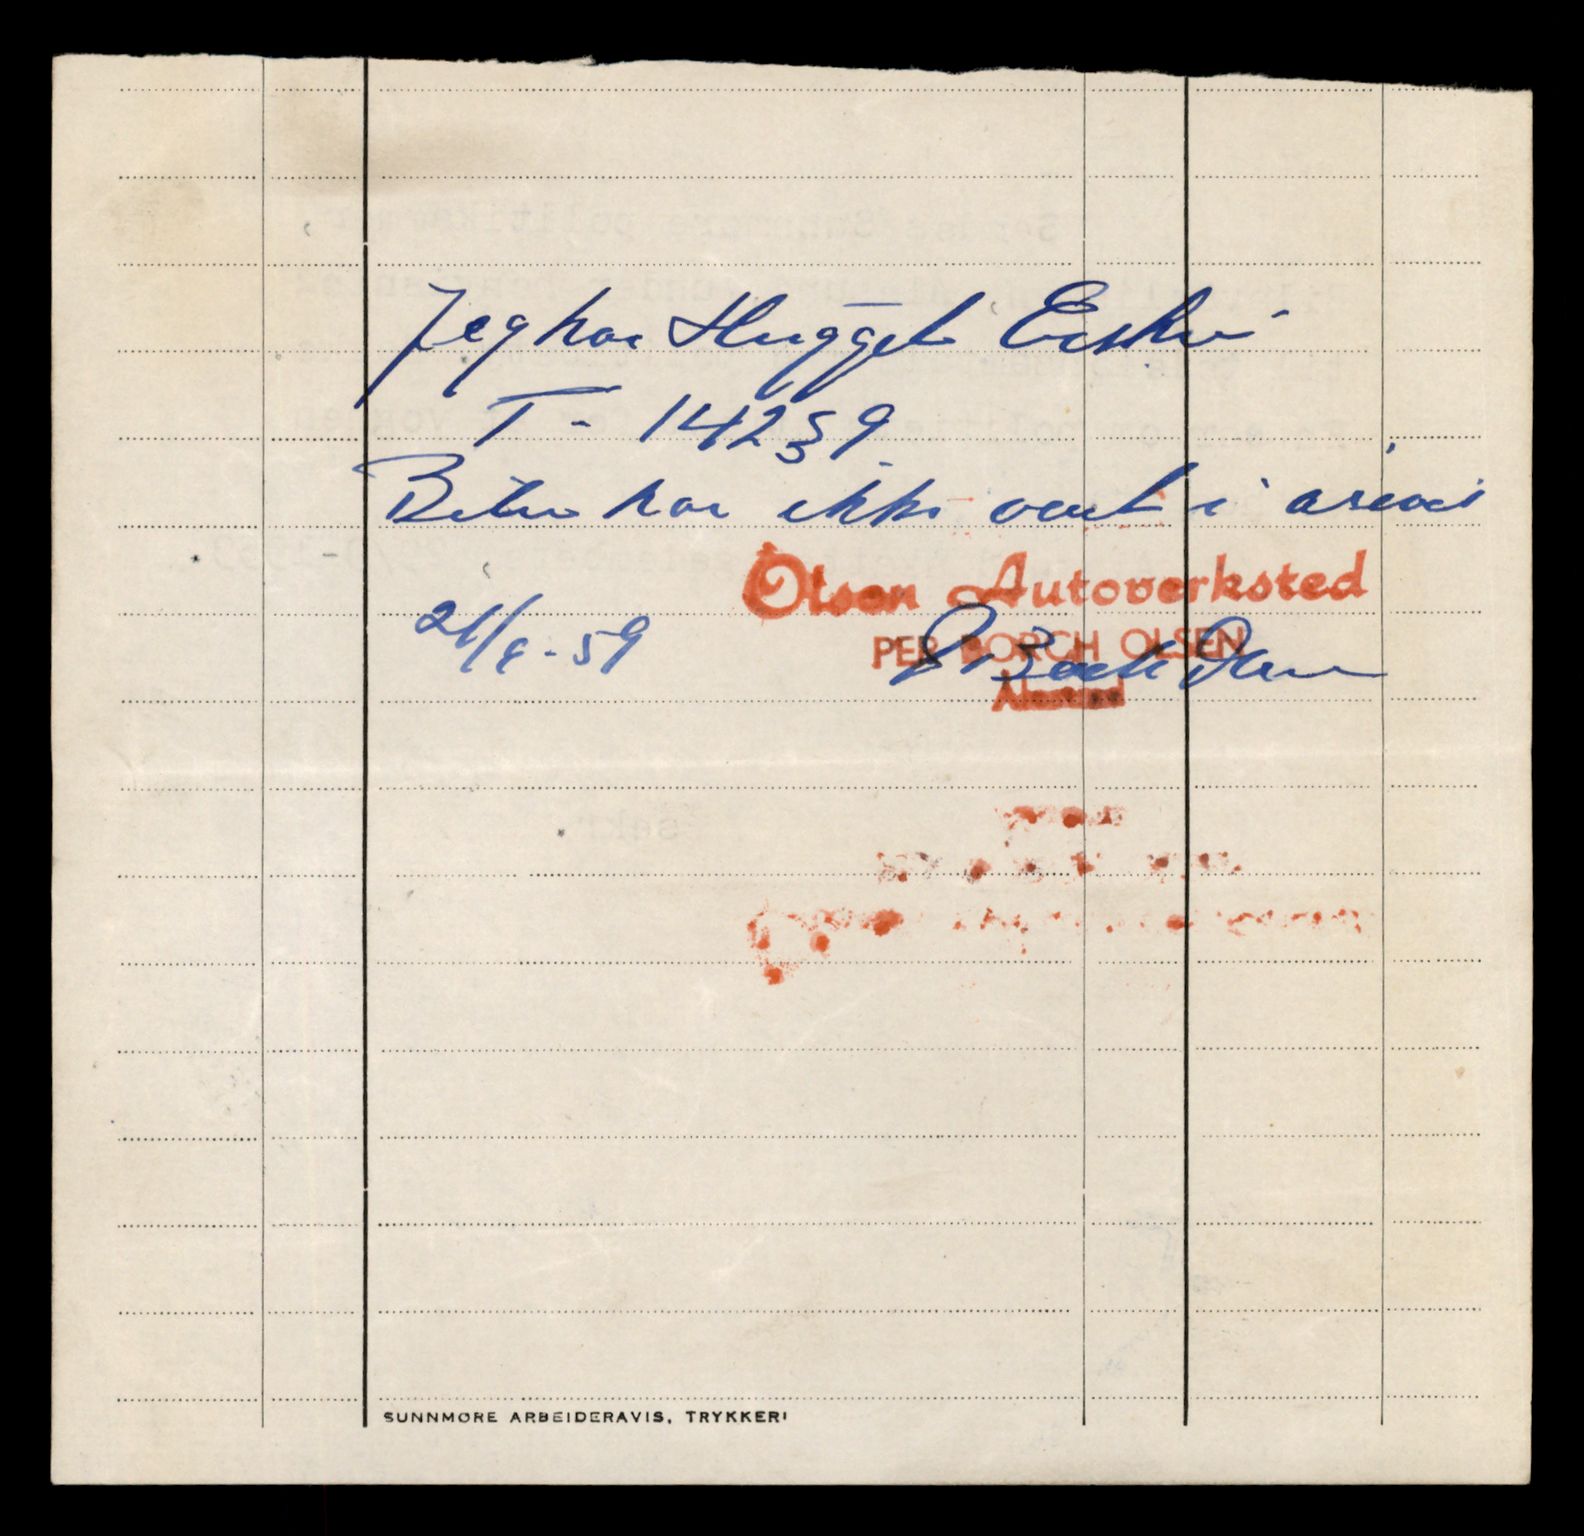 Jeg har Hugget Esken
T - 14239
Bilen har ikke vert i
21/8-59
Olsen Autoverksted
PER BORCH OLSEN
SUNNMØRE ARBEIDERAVIS, TRYKKERI